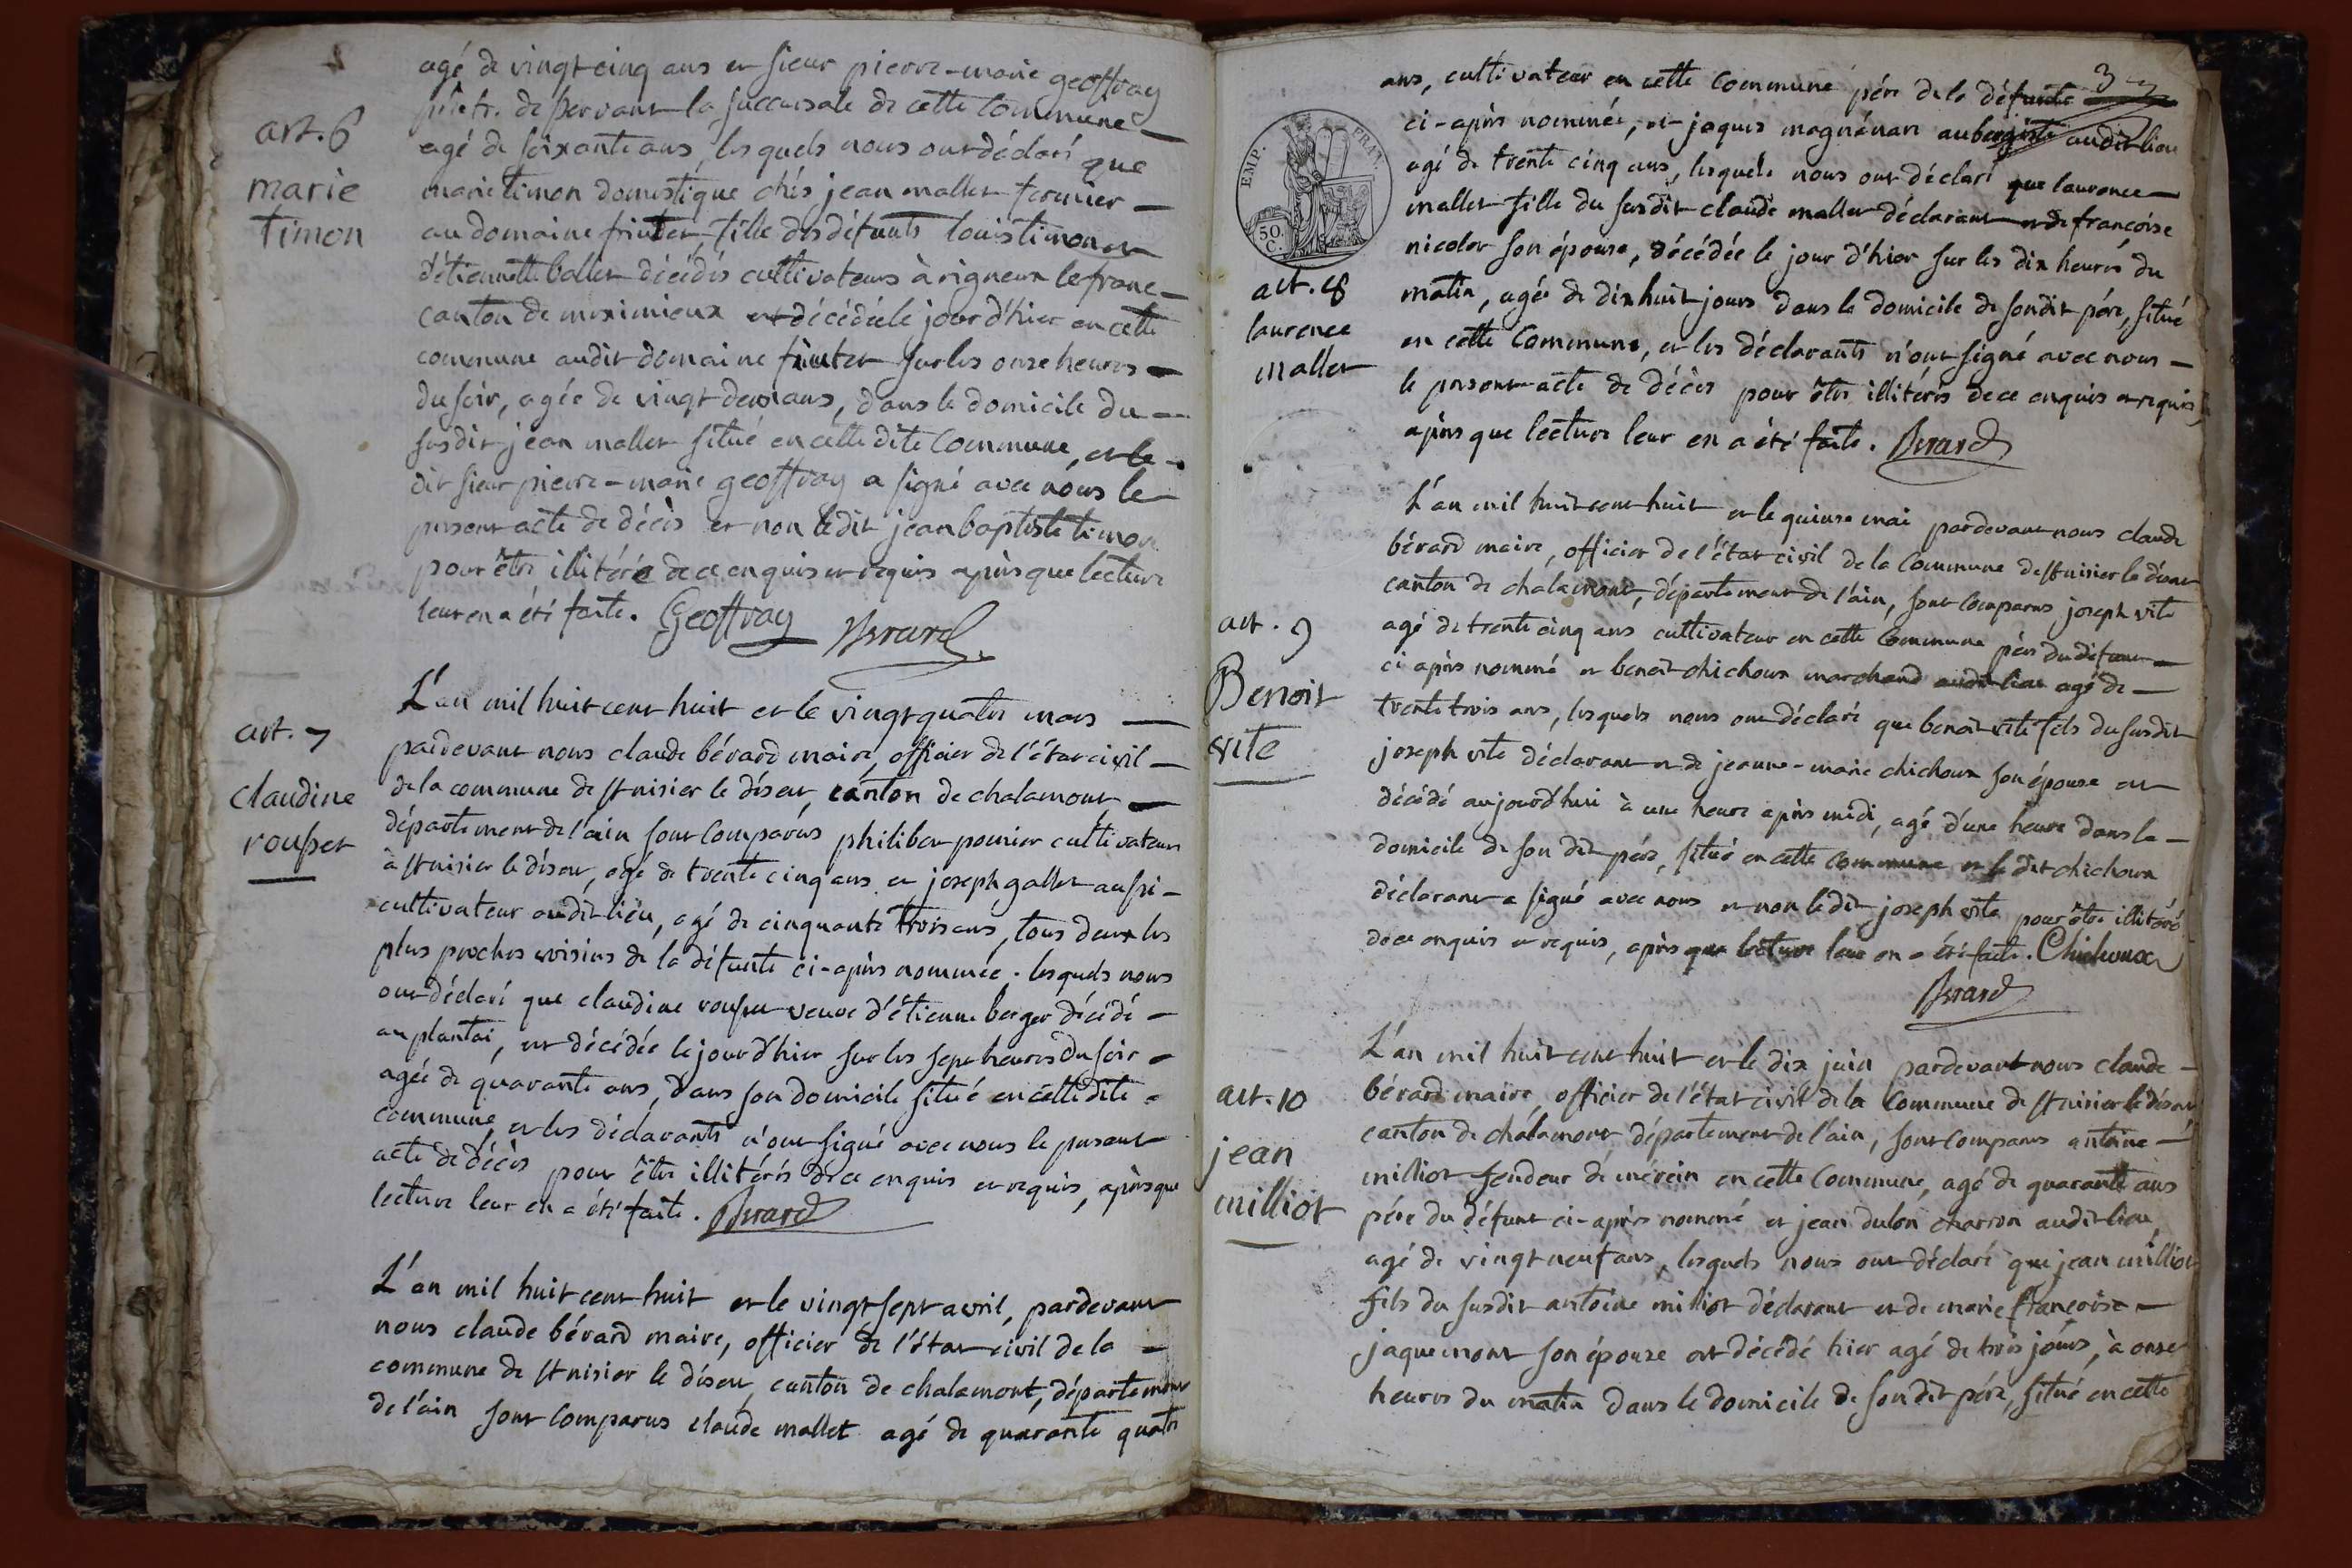 agé de vingt cinq ans et sieur pierre-marie geoffray
prêtr. desservant la succursale de cette commune
art. 6
marie
timon
agé de soixante ans, lesquels nous ont déclaré que
marie timon domestique chés jean mallet fermier
au domaine fruiter, fille des défunts louis timon et
d'étiennette ballet décédés cultivateurs à rigneux le franc
canton de meximieux est décédée le jour d'hier en cette
commune audit domaine fruiter sur les onze heures
du soir, agée de vingt deux ans, dans le domicile du
susdit jean mallet situé en cette dite commune, et le
dit sieur pierre-marie geoffray a signé avec nous le
présent acte de décès et non ledit jean baptiste timon
pour être illitéré de ce enquis et requis après que lecture
leur en a été faite. Geoffray Bérard
art. 7
claudine
rousset
L'an mil huit cent huit et le vingt quatre mars
pardevant nous claude bérard maire, officier de l'état civil
de la commune de st nisier le désert, canton de chalamont
département de l'ain sont comparus philibert peunier cultivateur
à st nisier le désert, agé de trente cinq ans et joseph gallet aussi
cultivateur audit lieu, agé de cinquante trois ans, tous deux les
plus proches voisins de la défunte ci-après nommée. lesquels nous
ont déclaré que claudine rousset veuve d'étienne berger décédé
au plantai, est décédée le jour d'hier sur les sept heures du soir
agée de quarante ans, dans son domicile situé en cette dite
commune, et les déclarants n'ont signé avec nous le présent
acte de décès pour être illitérés de ce enquis et requis, après que
lecture leur en a été faite. Bérard
L'an mil huit cent huit et le vingt sept avril, pardevant
nous claude bérard maire, officier de l'état civil de la
commune de st nisier le désert, canton de chalamont, département
de l'ain sont comparus claude mallet agé de quarante quatre
3
ans, cultivateur en cette commune père de la défunte
ci-après nommée, et jaques magnénan aubergiste audit lieu
agé de trente cinq ans, lesquels nous ont déclaré que laurence
mallet fille du susdit claude mallet déclarant et de françoise
nicolet son épouse, décédée le jour d'hier sur les dix heures du
EMP. FRAN.
50.
C.
art. 8
laurence
mallet
matin, agée de dix huit jours dans le domicile de sondit père, situé
en cette commune, et les déclarants n'ont signé avec nous
le présent acte de décès pour être illitérés de ce enquis et requis,
après que lecture leur en a été faite. Bérard
L'an mil huit cent huit et le quinze mai pardevant nous claude
bérard maire, officier de l'état civil de la commune de st nisier le désert
canton de chalamont, département de l'ain, sont comparus joseph vite
art. 9
Benoit
vite
agé de trente cinq ans cultivateur en cette commune père du défunt
ci après nommé et benoit chichoux marchand audit lieu agé de
trente trois ans, lesquels nous ont déclaré que benoit vite fils du susdit
joseph vite déclarant et de jeanne-marie chichoux son épouse est
décédé aujourd'hui à une heure après midi, agé d'une heure dans le
domicile de son dit père, situé en cette commune et le dit chichoux
déclarant a signé avec nous et non ledit joseph vite pour être illitéré
de ce enquis et requis, après que lecture leur en a été faite. Chichoux
Bérard
L'an mil huit cent huit et le dix juin pardevant nous claude
bérard maire, officier de l'état civil de la commune de st nisier le désert
art. 10
jean
milliot
canton de chalamont, département de l'ain, sont comparus antoine
milliot fendeur de mérein en cette commune, agé de quarante ans
père du défunt ci-après nommé et jean dulon charron audit lieu,
agé de vingt neuf ans, lesquels nous ont déclaré que jean milliot
fils du susdit antoine milliot déclarant et de marie françoise
jaquemont son épouse est décédé hier agé de trois jours, à onze
heures du matin dans le domicile de son dit père, situé en cette